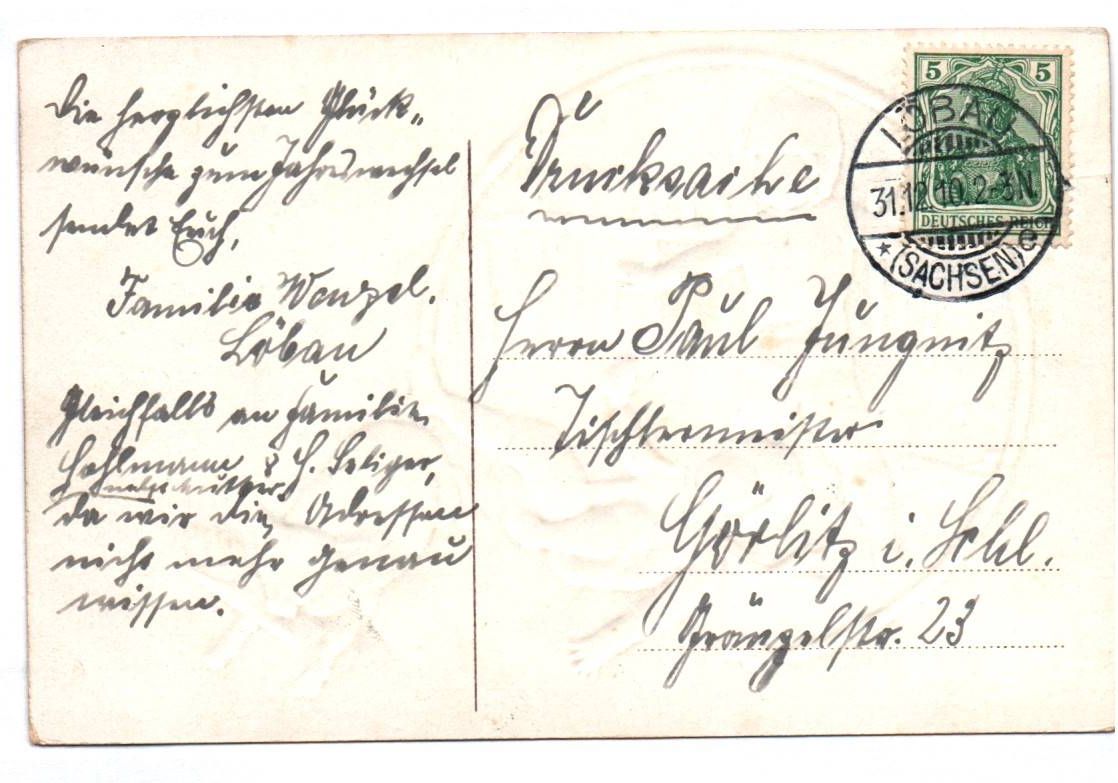 Die herzlichsten Glück„
wünsche zum Jahreswechsel
sendet Euch,
Familie Wenzel.
Löbau
Gleichfalls an Familie
Hohlmann & H. Seliger,
da wir die Adressen
nicht mehr genau
wissen.
Drucksache
5 5
DEUTSCHES REICH
LÖBAU
31.12.10.2-3N.
*(SACHSEN)e
Herrn Paul Jungnitz
Tischlermeister
Görlitz i. Schl.
23